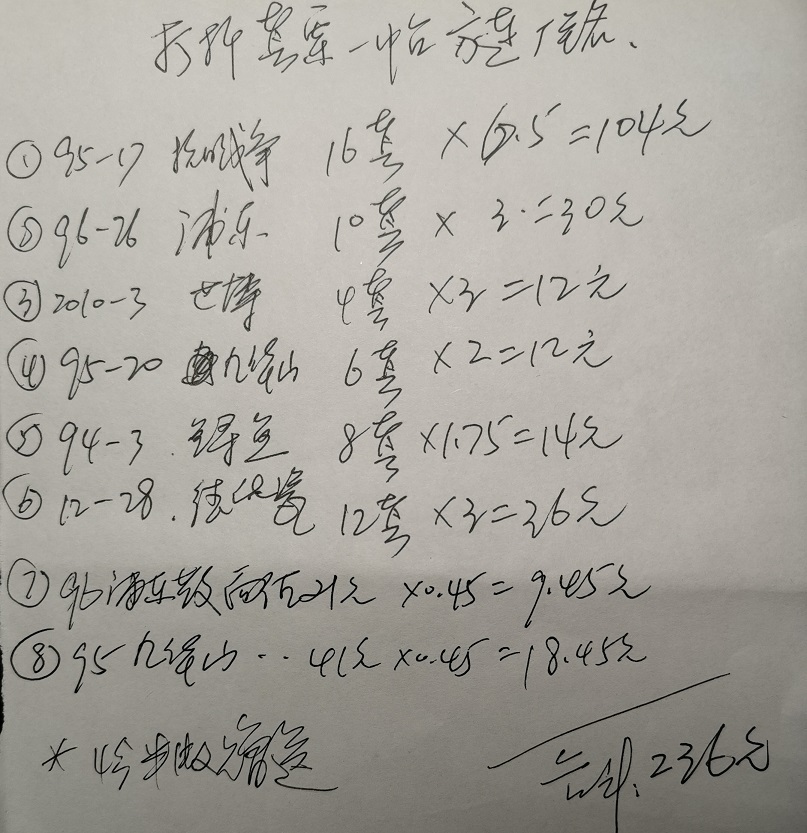 打折套票一怡
① 95-17 抗战争 16套 ×6.5=104元
② 96-26 浦东 10套 × 3.=30元
③ 2010-3 世博 4套 ×3=12元
④ 95-20 九华山 6套 ×2=12元
⑤ 94-3. 鲟鱼 8套 ×1.75=14元
⑥ 12-28. 德化瓷 12套 ×3=36元
⑦ 96浦东散 面值21元 ×0.45=9.45元
⑧ 95九华山·· 41元 ×0.45=18.45元
*
合计.236元